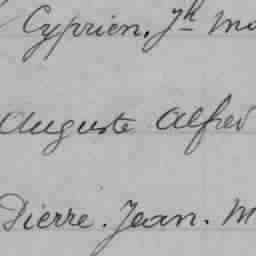 Cyprien. Jh
Auguste Alfred
Pierre. Jean. M